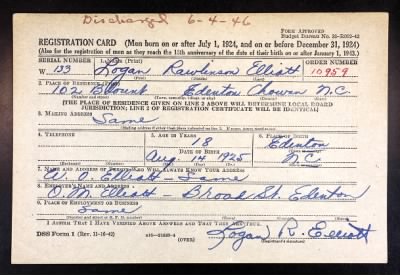 Discharged 6-4-46
FORM APPROVED
REGISTRATION CARD (Men born on or after July 1, 1924, and on or before December 31, 1924)
(Also for the registration of men as they reach the 18th anniversary of the date of their birth on or after January 1, 1943.)
SERIAL NUMBER 1. NAME (Print) ORDER NUMBER
W 133 Logan Rawlinson Elliott 10959
(First) (Middle) (Last)
2. PLACE OF RESIDENCE (Print)
102 Blount Edenton Chowan N.C.
[THE PLACE OF RESIDENCE GIVEN ON LINE 2 ABOVE WILL DETERMINE LOCAL BOARD
JURISDICTION; LINE 2 OF REGISTRATION CERTIFICATE WILL BE IDENTICAL]
3. MAILING ADDRESS
Same
4. TELEPHONE 5. AGE IN YEARS 6. PLACE OF BIRTH
18 Edenton
DATE OF BIRTH
Aug. 14 1925 N.C.
7. NAME AND ADDRESS OF PERSON WHO WILL ALWAYS KNOW YOUR ADDRESS
Elliott Same
8. EMPLOYER'S NAME AND ADDRESS
O.M. Elliott Broad St. Edenton
9. PLACE OF EMPLOYMENT OR BUSINESS
Same
I AFFIRM THAT I HAVE VERIFIED ABOVE ANSWERS AND THAT THEY ARE TRUE.
DSS Form 1 (OVER) Logan R. Elliott
(Registrant's signature)